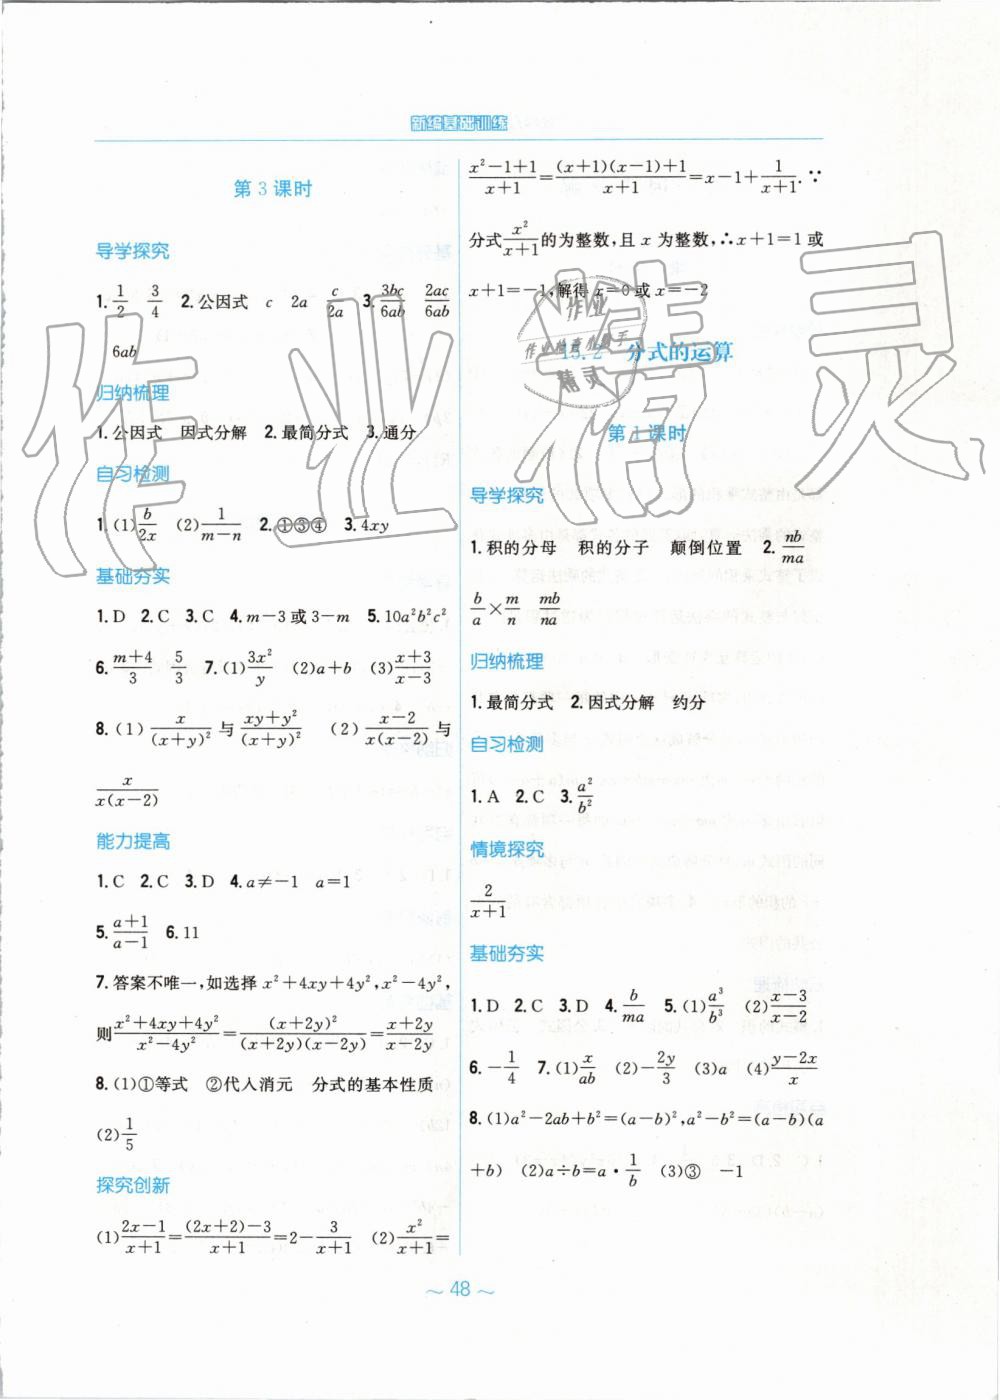 新编基础训练
第3课时
导学探究
1. 1/2  3/4  2.公因式  c  2a  c/2a  3. 3bc/6ab  2ac/6ab
6ab
归纳梳理
1.公因式  因式分解  2.最简分式  3.通分
自习检测
1.(1) b/2x  (2) 1/(m-n)  2.①③④  3.4xy
基础夯实
1.D  2.C  3.C  4.m-3或3-m  5.10a²b²c²
6. (m+4)/3  5/3  7.(1) 3x²/y  (2)a+b  (3) (x+3)/(x-3)
8.(1) x/(x+y)² 与 (xy+y²)/(x+y)²  (2) (x-2)/x(x-2) 与
x/x(x-2)
能力提高
1.C  2.C  3.D  4.a≠-1  a=1
5. (a+1)/(a-1)  6.11
7.答案不唯一,如选择 x²+4xy+4y²,x²-4y²,
则 (x²+4xy+4y²)/(x²-4y²) = (x+2y)²/(x+2y)(x-2y) = (x+2y)/(x-2y)
8.(1)①等式  ②代入消元  分式的基本性质
(2) 1/5
探究创新
(1) (2x-1)/(x+1) = ((2x+2)-3)/(x+1) = 2- 3/(x+1)  (2) x²/(x+1) =
(x²-1+1)/(x+1) = ((x+1)(x-1)+1)/(x+1) = x-1+ 1/(x+1). ∵
分式 x²/(x+1) 的为整数,且 x 为整数,∴x+1=1或
x+1=-1,解得 x=0或x=-2
15.2 分式的运算
第1课时
导学探究
1.积的分母  积的分子  颠倒位置  2. nb/ma
b/a × m/n  mb/na
归纳梳理
1.最简分式  2.因式分解  约分
自习检测
1.A  2.C  3. a²/b²
情境探究
2/(x+1)
基础夯实
1.D  2.C  3.D  4. b/ma  5.(1) a³/b³  (2) (x-3)/(x-2)
6.- 1/4  7.(1) x/ab  (2)- 2y/3  (3)a  (4) (y-2x)/x
8.(1)a²-2ab+b²=(a-b)²,a²-b²=(a-b)(a
+b)  (2)a÷b=a· 1/b  (3)③  -1
～ 48 ～
作业精灵
作业
作业检查小助手
精灵